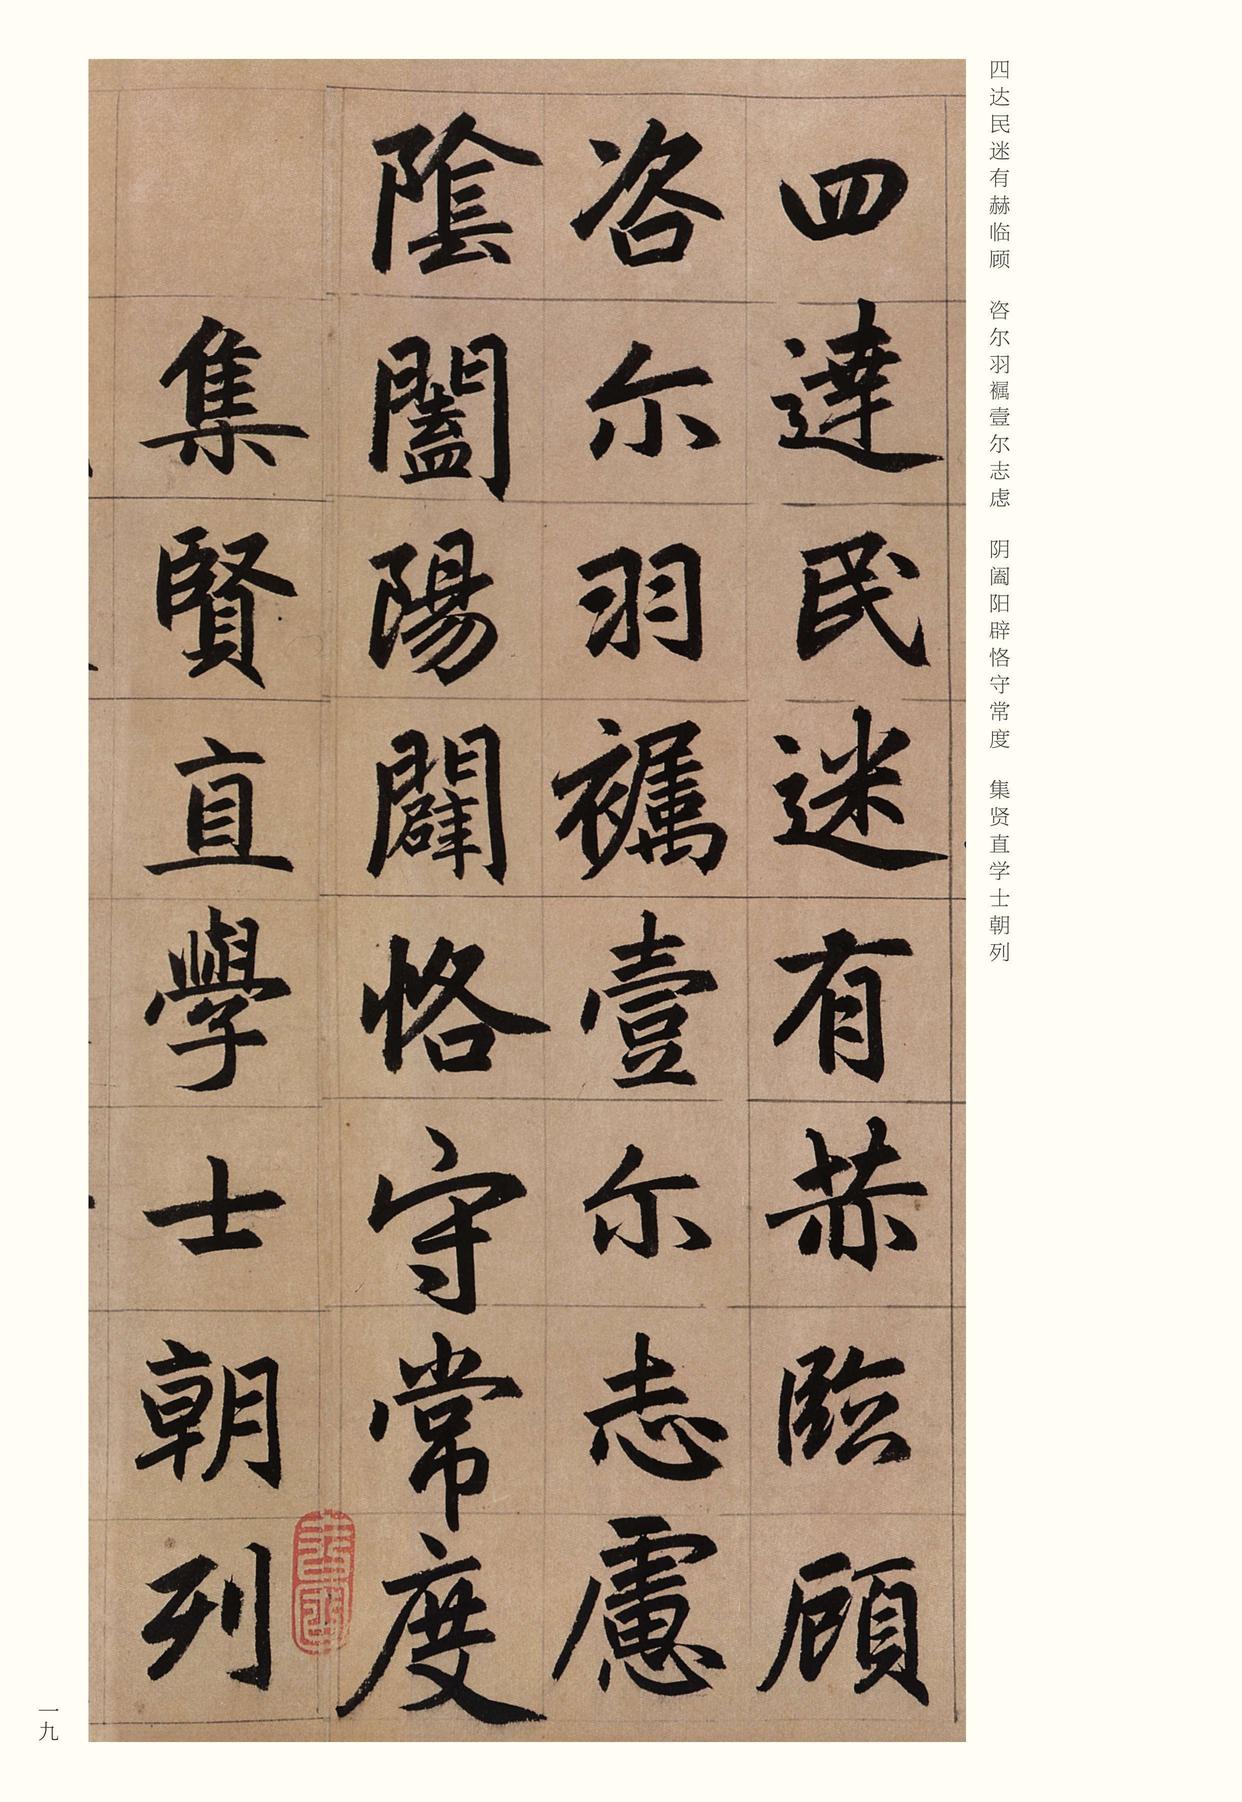 四达民迷有赫临顾　咨尔羽襡壹尔志虑　阴阖阳辟恪守常度　集贤直学士朝列
四達民迷有赫臨顧
咨尔羽襡壹尔志慮
陰闔陽闢恪守常度
集賢直學士朝列
一九